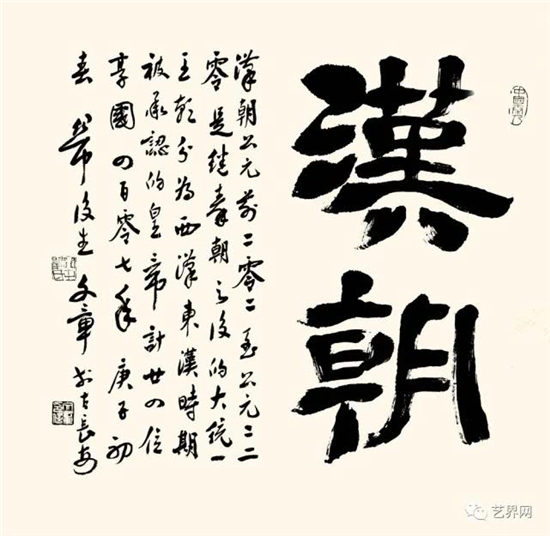 漢朝
漢朝公元前二零二至公元二二
零是继秦朝之後的大统一
王朝分為西漢東漢時期
被承認的皇帝計廿四位
享國四百零七年 庚子初
春 後生 文章 於古長安
艺界网